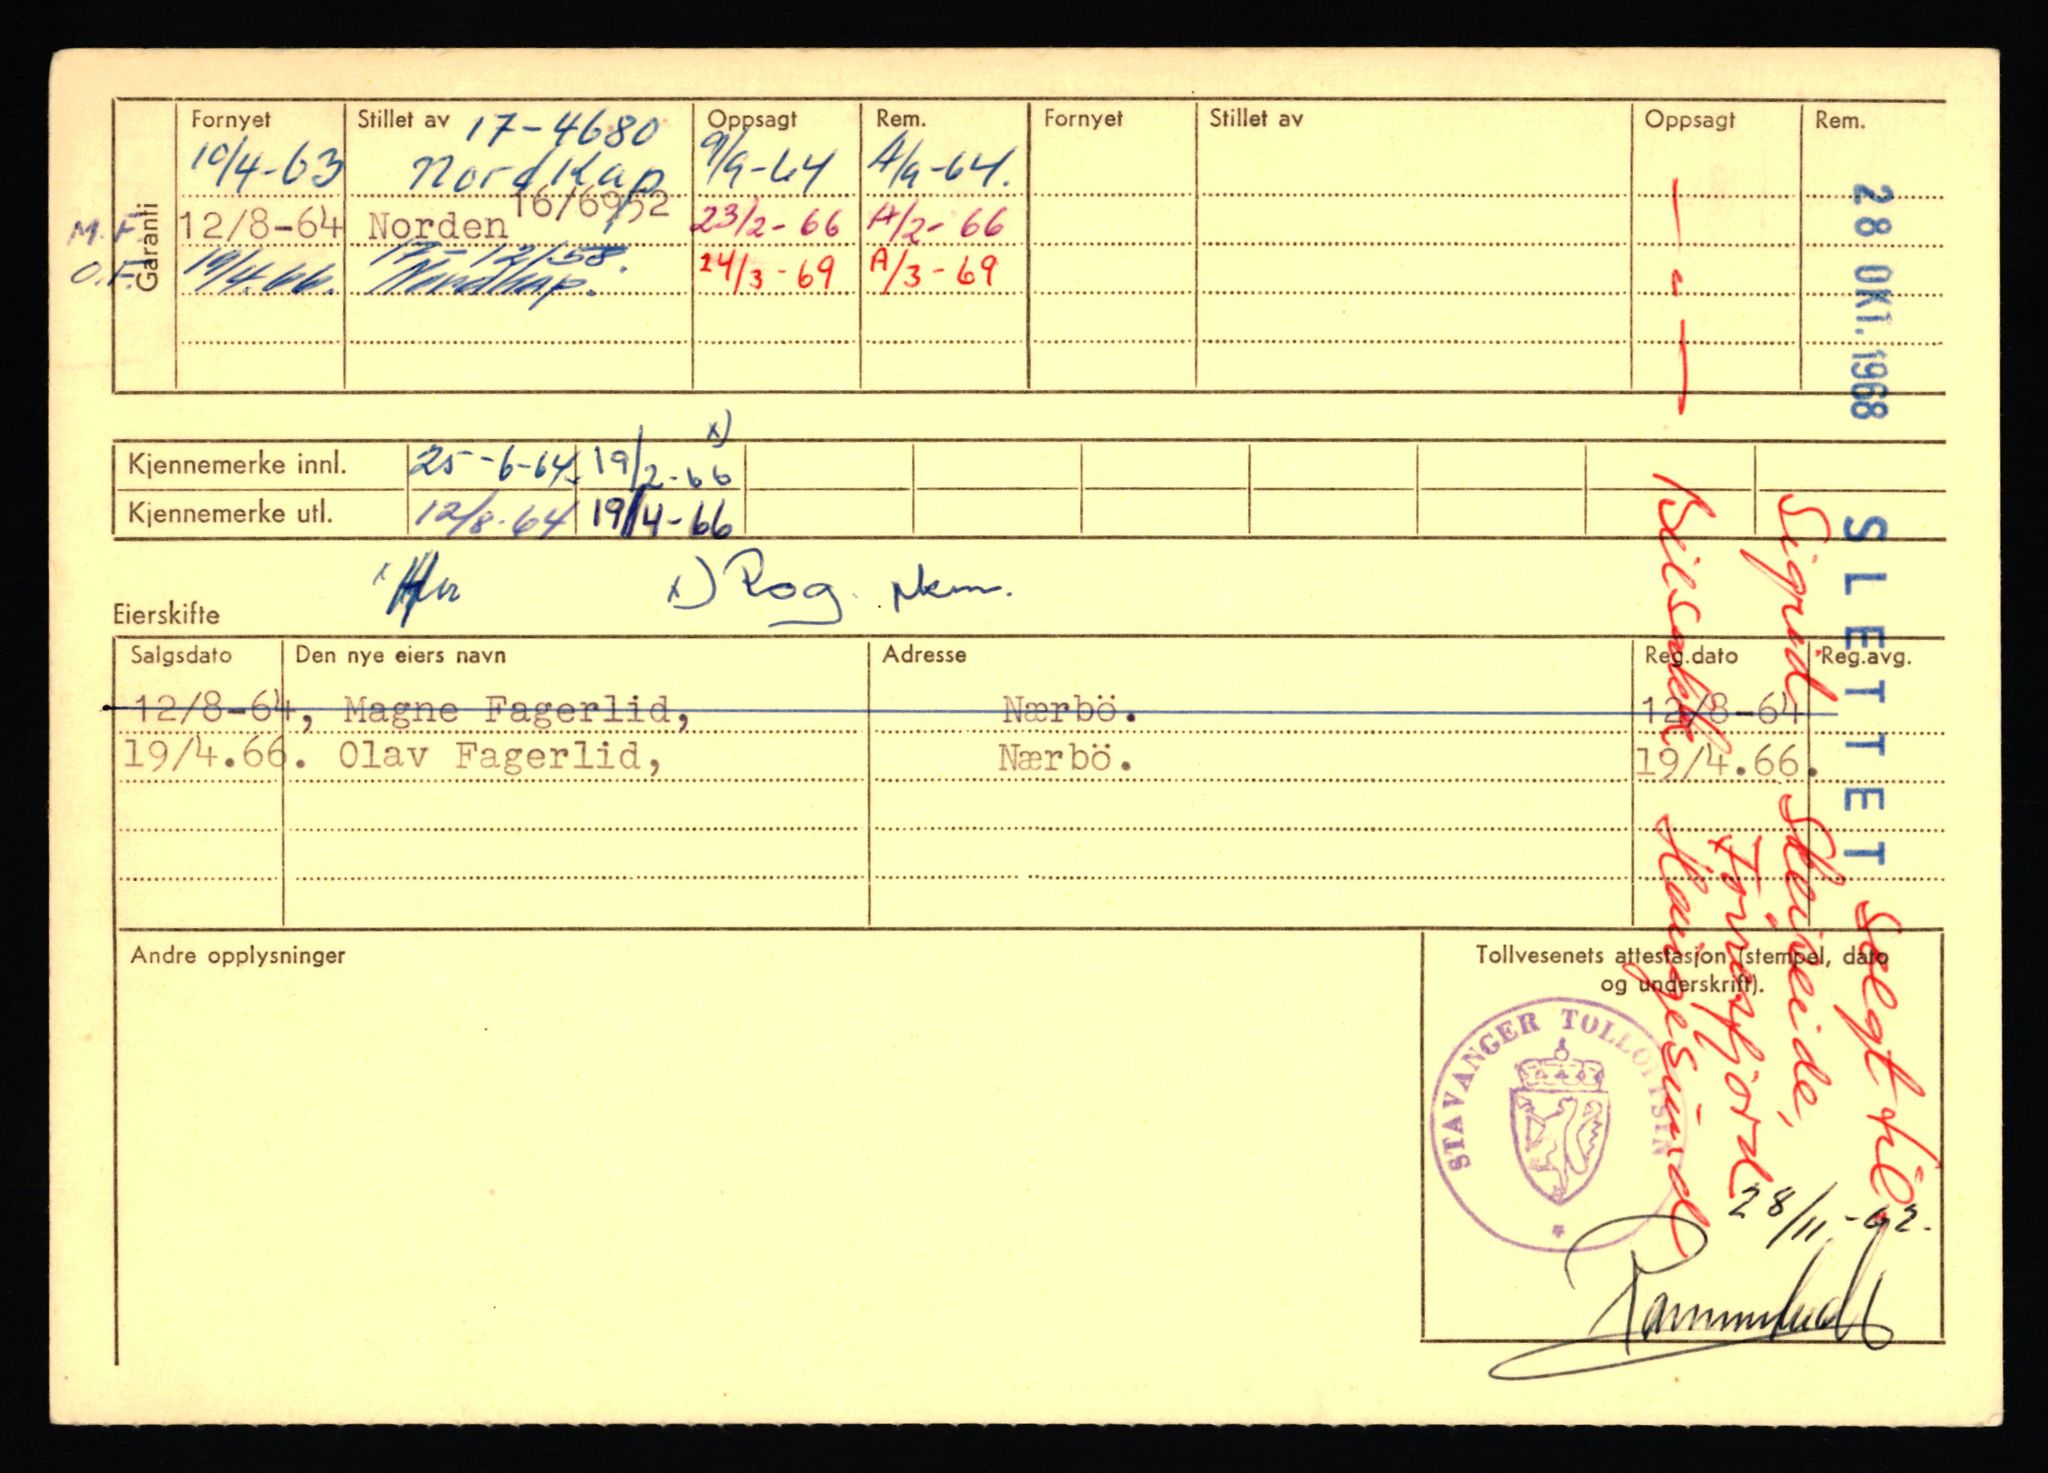 Garanti
Fornyet Stillet av Oppsagt Rem. Fornyet Stillet av Oppsagt Rem.
17-4680
10/4-63 Nordkap 9/9-64 A/9-64.
16/6952
M.F. 12/8-64 Norden 23/2-66 A/2-66
17-12158.
O.F. 19/4.66. Nordkap. 24/3-69 A/3-69
x)
Kjennemerke innl. 25-6-64 19/2-66
Kjennemerke utl. 12/8-64 19/4-66
x) Rog. Nkm.
Eierskifte
Salgsdato Den nye eiers navn Adresse Reg.dato Reg.avg.
12/8-64, Magne Fagerlid, Nærbö. 12/8-64
19/4.66. Olav Fagerlid, Nærbö. 19/4.66.
Andre opplysninger
Tollvesenets attestasjon (stempel, dato
og underskrift).
STAVANGER TOLLOPPSYN
28/11-62.
28 OKT. 1968 SLETTET
Selgt til
Sigrid Skeiseide,
Førresfjord
Bilsakk. Haugesund